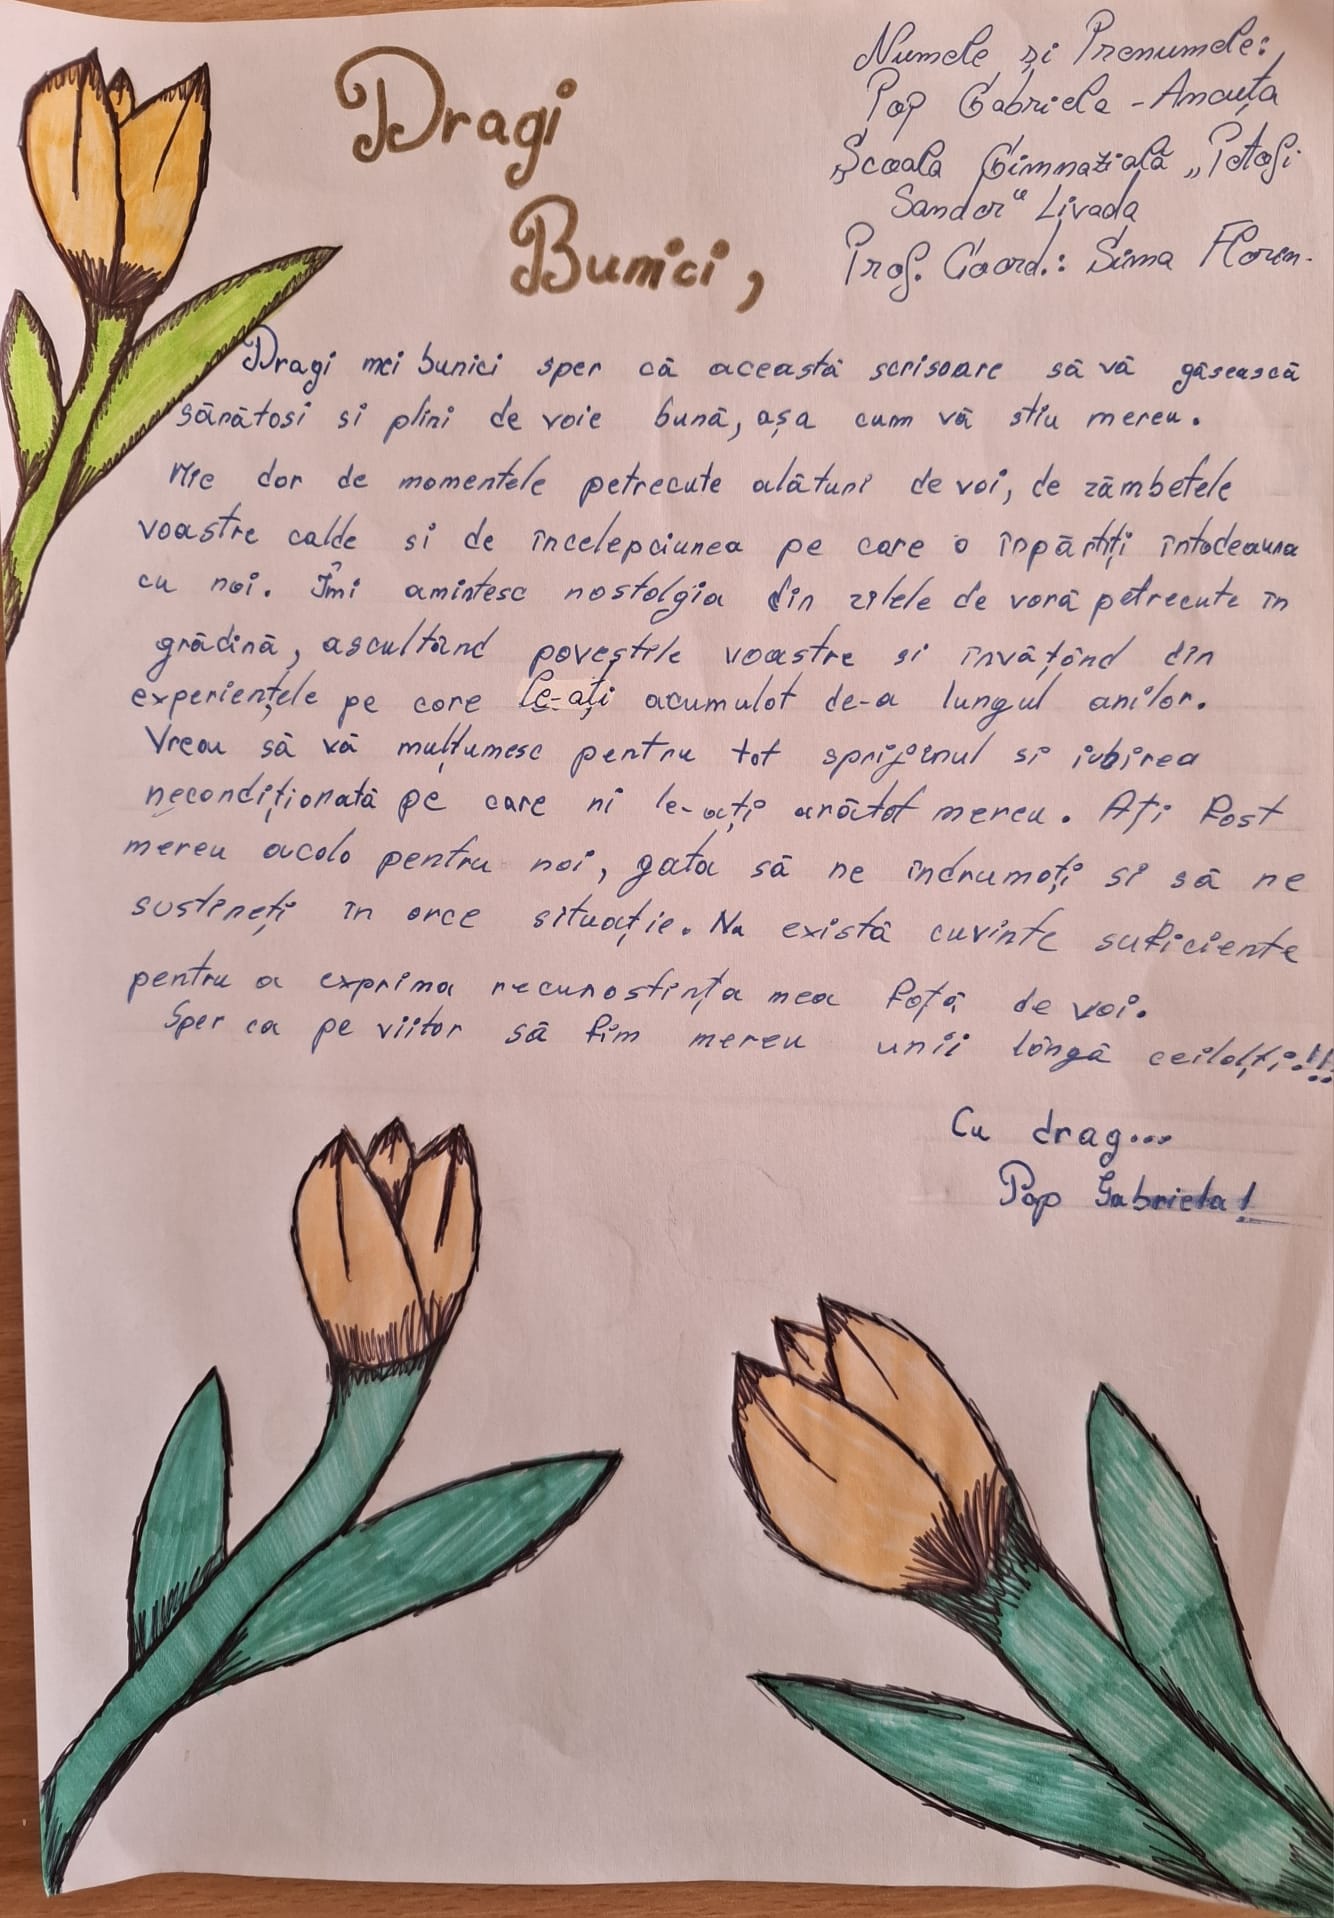 Dragi
Bunici,
Numele și Prenumele:
Pop Gabriela - Ancuța
Școala Gimnazială „Petofi
Sandor" Livada
Prof. Coord.: Sima Florin-
Dragi mei bunici sper că această scrisoare să vă găsească
sănătosi si plini de voie bună, așa cum vă stiu mereu.
Mie dor de momentele petrecute alături de voi, de zâmbetele
voastre calde si de încelepciunea pe care o înpărtiți întodeauna
cu noi. Îmi amintesc nostolgia din zilele de vară petrecute în
grădină, ascultând poveștele voastre si învățând din
experiențele pe care le-ați acumulat de-a lungul anilor.
Vreau să vă mulțumesc pentru tot sprijinul si iubirea
necondiționată pe care ni le-ați arătat mereu. Ați fost
mereu acolo pentru noi, gata să ne îndrumați si să ne
sustineți în orce situație. Nu există cuvinte suficiente
pentru a exprima recunostința mea față de voi.
Sper ca pe viitor să fim mereu unii lângă ceilalți.!!!
Cu drag...
Pop Gabriela!